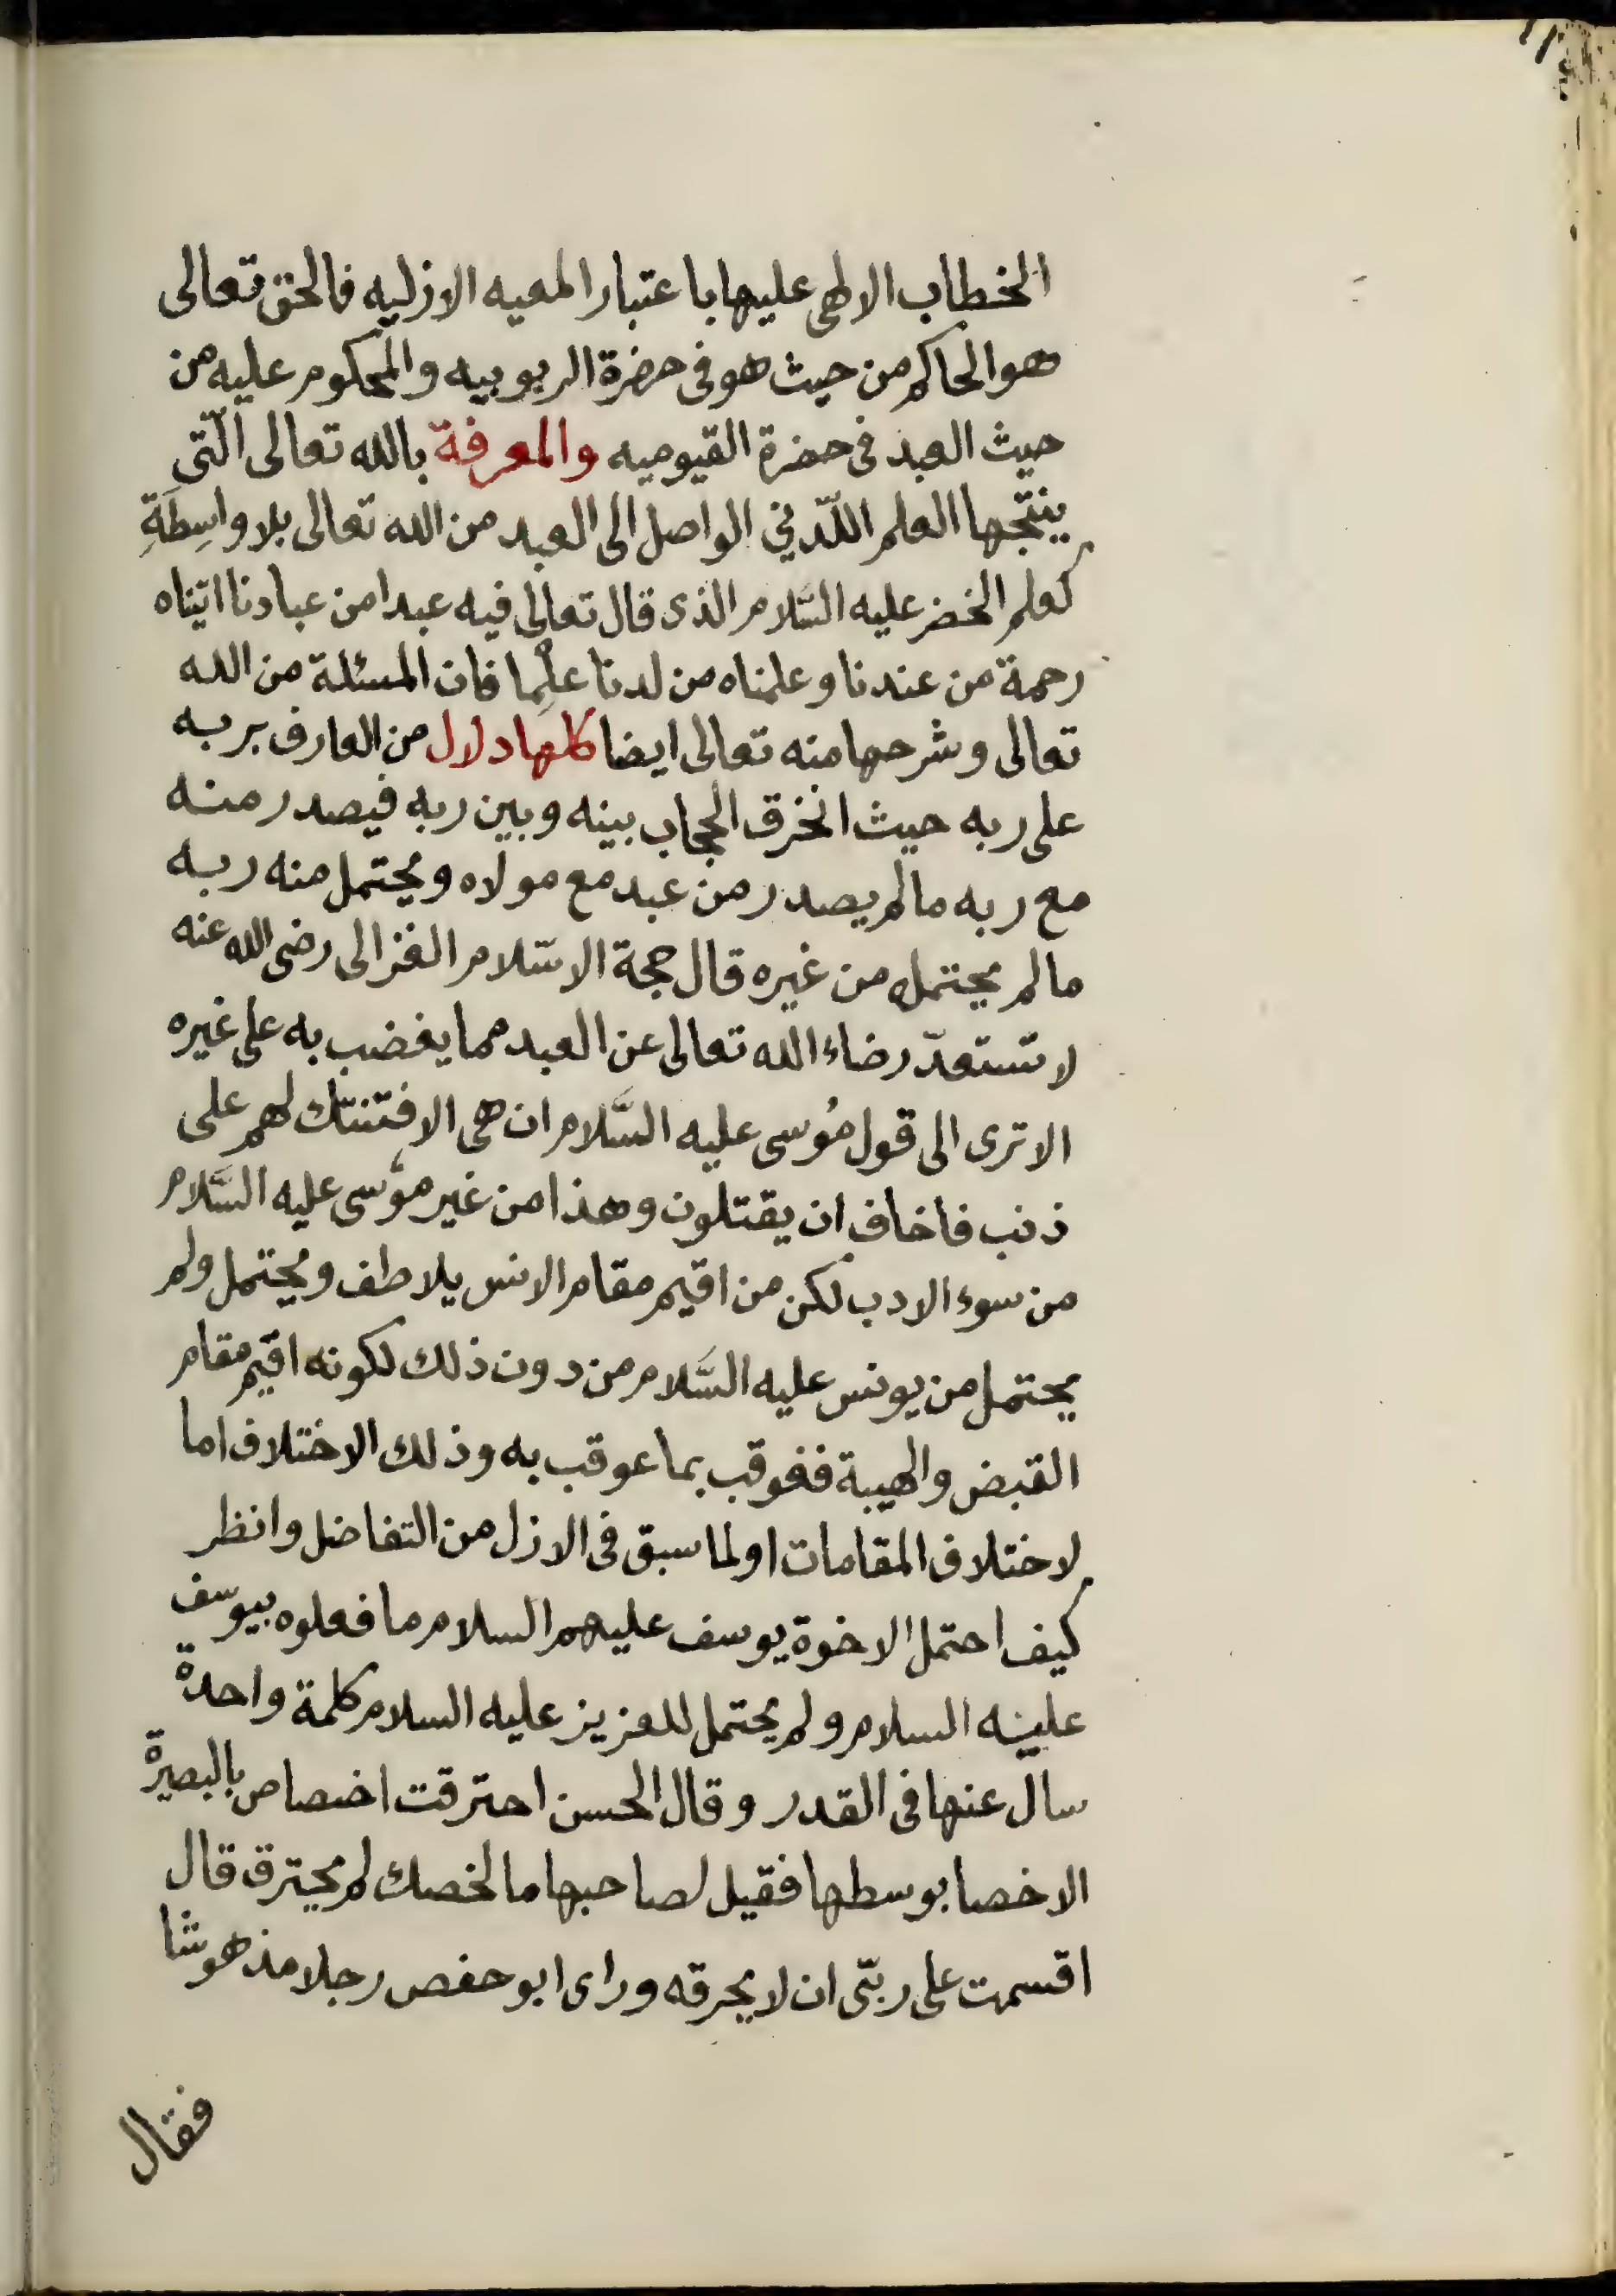 الخطاب الالهى عليها باعتبار المعيه الازليه فالحق تعالى
هو الحاكم من حيث هو فى حضرة الربوبيه والمحكوم عليه من
حيث العبد فى حضرة القيوميه والمعرفة بالله تعالى الّتى
ينتجها العلم اللّدني الواصل الى العبد من الله تعالى بلا واسِطَةِ
كعلم الخضر عليه السَّلام الذى قال تعالى فيه عبدا من عبادنا اتيناه
رحمة من عندنا وعلمناه من لدنا علِما فان المسئلة من الله
تعالى وشرحها منه تعالى ايضا كلها دلال من العارف بربه
على ربه حيث انخرق الحجاب بينه وبين ربه فيصدر منه
مع ربه ما لم يصدر من عبد مع مولاه ويحتمل منه ربه
ما لم يحتمل من غيره قال حجة الاسّلام الغزالى رضى الله عنه
لا تستعدّ رضاء الله تعالى عن العبد مما يغضب به على غيره
الا ترى الى قول مُوسى عليه السَّلام ان هى الا فتنتك لهم على
ذنب فاخاف ان يقتلون وهذا من غير موُسى عليه السَّلام
من سوء الادب لكن من اقيم مقام الانس يلاطف ويحتمل ولم
يحتمل من يونس عليه السَّلام من دون ذلك لكونه اقيم مقام
القبض والهيبة فغوقب بما عوقب به وذلك الاختلاف اما
لاختلاف المقامات او لما سبق فى الازل من التفاضل وانظر
كيف احتمل الاخوة يوسف عليهم السلام ما فعلوه بيوسف
علينه السلام ولم يحتمل للعزيز عليه السلام كلمة واحدة
سال عنها فى القدر وقال الحسن احترقت اخصاص بالبصيرة
الاخصا بوسطها فقيل لصاحبها ما لخصك لم يحترق قال
اقسمت على ربّى ان لا يحرقه وراى ابو حفص رجلا مذهوشا
فقال